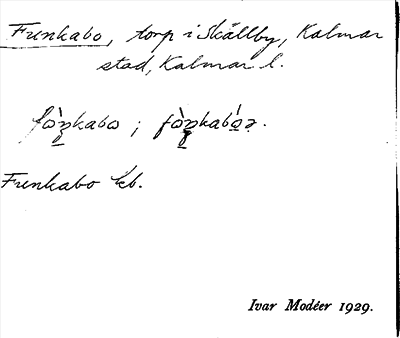 Funkabo, torp i Skälby, Kalmar
stad, Kalmar l.
fòŋkabo ; fòŋkabóə.
Funkabo kb.
Ivar Modéer 1929.